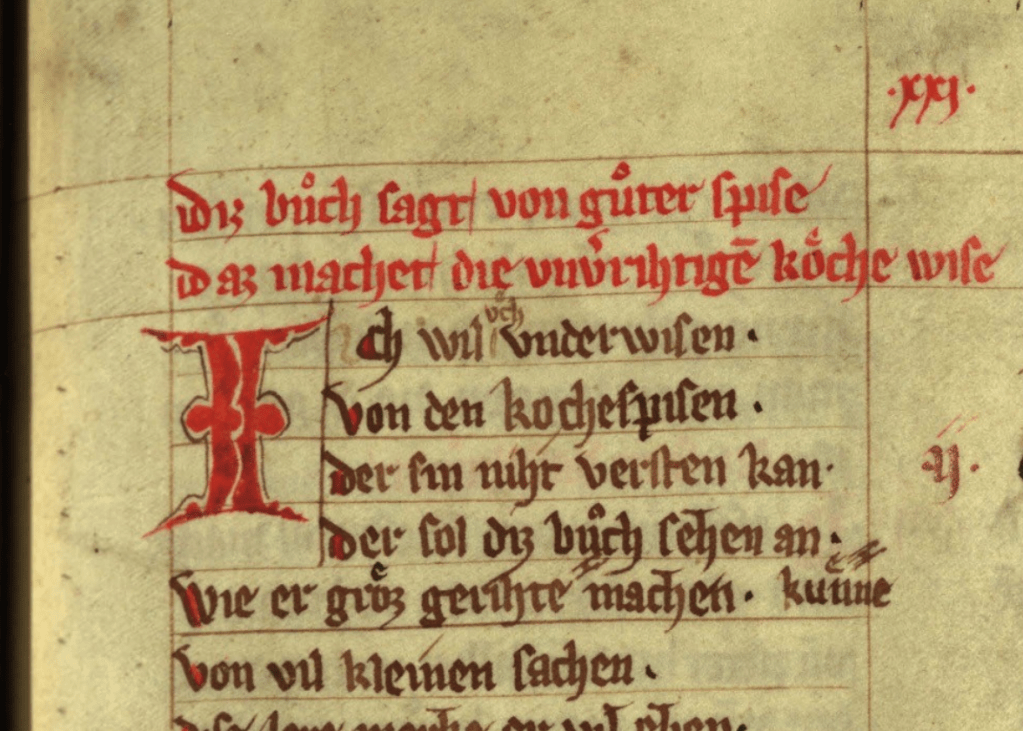 .xxj.
diz bůch sagt von gůter spise
daz machet die vnv̓rihtigē kỏche wise
Ich wil uch vnderwisen .
von den kochespisen .
.ij.
der sin niht versten kan .
der sol diz bůch sehen an .
wie er groͤz gerihte machen . kuͤnne
von vil kleinen sachen .